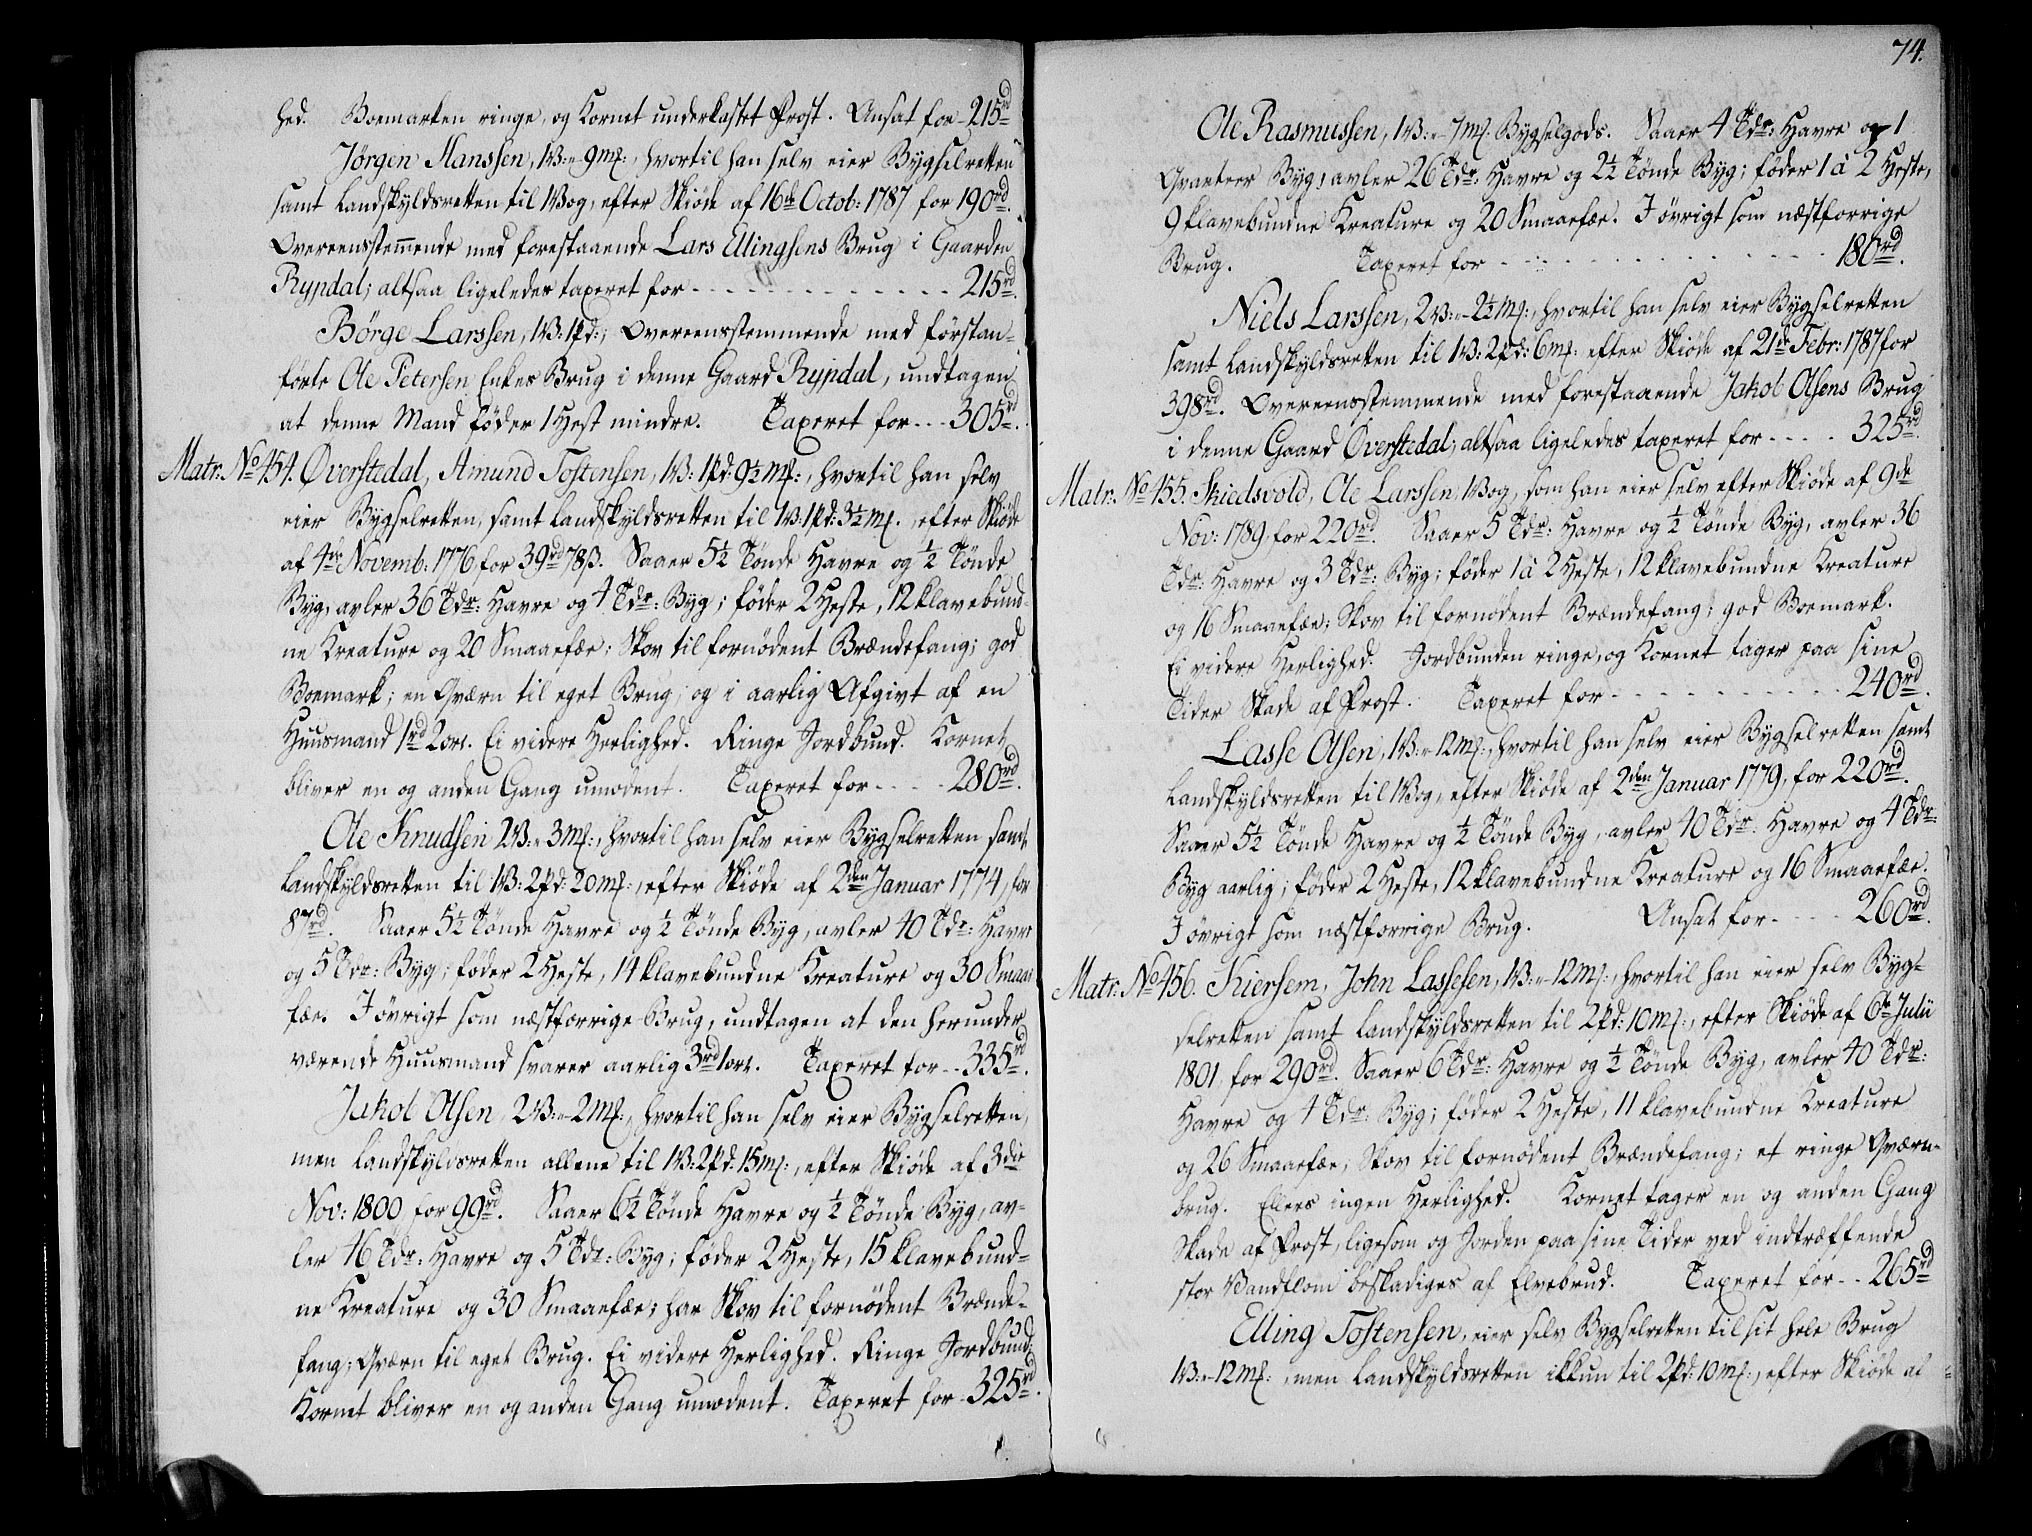 hed. Boemarken ringe, og Kornet underkastet Frost. Ansat for - 215rd
Jørgen Hanssen, 1V: „ 9mf:, hvortil han selv eier Bygselretten
samt Landskyldsretten til 1Vog, efter Skiøde af 16de Octob: 1787 for 190rd.
Overeensstem̅ende med forestaaende Lars Ellingsens Brug i Gaarden
Rypdal; altsaa ligeledes taxeret for - - - - - - - - - - - - 215rd.
Børge Larssen, 1V: 1pd:, Overeensstemmende med førstan-
førte Ole Petersen Enkes Brug i denne Gaard Rypdal, undtagen
at denne Mand føder 1 Hest mindre. Taxeret for - - - 305rd.
Matr: No 454. Øverstedal, Amund Tostensen, 1V: 1pd: 9½ mf:, hvortil han selv
eier Bygselretten, samt Landskyldsretten til 1V: 1pd: 3½ mf., efter Skiøde
af 4de Novemb: 1776 for 39rd 78ß. Saaer 5½ Tønde Havre og ½ Tønde
Byg, avler 36 Tdr: Havre og 4 Tdr: Byg; føder 2 Heste, 12 klavebund-
ne Kreature og 20 Smaaefæe; Skov til fornødent Brændefang; god
Boemark; en Qværn til eget Brug; og i aarlig Afgivt af en
Huusmand 1rd 2ort. Ei videre Herlighed. Ringe Jordbund. Kornet
bliver en og anden Gang umodent. Taxeret for - - - - 280rd.
Ole Knudsen 2V: „ 3mf:, hvortil han selv eier Bygselretten samt
Landskyldsretten til 1V: 2pd: 20mf:, efter Skiøde af 2den Januar 1774, for
87rd. Saaer 5½ Tønde Havre og ½ Tønde Byg, avler 40 Tdr: Havre
og 5 Tdr: Byg; føder 2 Heste, 14 klavebundne Kreature og 30 Smaae
fæe. I øvrigt som næstforrige Brug, undtagen at den herunder
værende Huusmand svarer aarlig 3rd 1ort. Taxeret for - - 335rd.
Jakob Olsen 2V: „ 2mf:, hvortil han selv eier Bygselretten,
men Landskyldsretten allene til 1V: 2pd: 15mf:, efter Skiøde af 3die
Nov: 1800 for 99rd. Saaer 6½ Tønde Havre og ½ Tønde Byg, av-
ler 46 Tdr: Havre og 5 Tdr: Byg; føder 2 Heste, 15 klavebund-
ne Kreature og 30 Smaaefæe; har Skov til fornødent Brænde-
fang; Qværn til eget Brug. Ei videre Herlighed. Ringe Jordbund;
Kornet bliver en og anden Gang umodent. Taxeret for - 325rd.
74.
Ole Rasmussen, 1V: „ 7mf: Bygselgods. Saaer 4 Tdr: Havre og 1
Qvarteer Byg, avler 26 Tdr: Havre og 2½ Tønde Byg; føder 1 à 2 Heste,
9 klavebundne Kreature og 20 Smaaefæe. I øvrigt som næstforrige
Brug. Taxeret for - - - - - - - - - - - - - 180rd.
Niels Larssen, 2V: „ 2½ mf:, hvortil han selv eier Bygselretten
samt Landskyldsretten til 1V: 2pd: 6mf: efter Skiøde af 21de Febr: 1787 for
398rd. Overeensstemmende med forestaaende Jakob Olsens Brug
i denne Gaard Øverstedal; altsaa ligeledes taxeret for - - - - 325rd.
Matr: No 455. Skiedsvold, Ole Larssen 1Vog, som han eier selv efter Skiøde af 9de
Nov: 1789 for 220rd. Saaer 5 Tdr: Havre og ½ Tønde Byg, avler 36
Tdr: Havre og 3 Tdr: Byg; føder 1 à 2 Heste, 12 klavebundne Kreature
og 16 Smaaefæe; Skov til fornødent Brændefang; god Boemark.
Ei videre Herlighed. Jordbunden ringe, og Kornet tager paa sine
Tider Skade af Frost. Taxeret for - - - - - - - - - - 240rd.
Lasse Olsen, 1V: „ 12mf:, hvortil han selv eier Bygselretten samt
Landskyldsretten til 1Vog, efter Skiøde af 2den Januar 1779, for 220rd.
Saaer 5½ Tønde Havre og ½ Tønde Byg, avler 40 Tdr: Havre og 4 Tdr:
Byg aarlig; føder 2 Heste, 12 klavebundne Kreature og 16 Smaaefæe.
I øvrigt som næstforrige Brug. Ansat for - - - - 260rd.
Matr: No 456. Kiersem, John Lassesen, 1V: „ 12mf:, hvortil han eier selv Byg-
selretten samt Landskyldsretten til 2pd: 10mf:, efter Skiøde af 6te Julii
1801, for 290rd. Saaer 6 Tdr: Havre og ½ Tønde Byg, avler 40 Tdr:
Havre og 4 Tdr: Byg; føder 2 Heste, 11 klavebundne Kreature
og 26 Smaaefæe; Skov til fornødent Brændefang; et ringe Qværn-
brug. Ellers ingen Herlighed. Kornet tager en og anden Gang
Skade af Frost, ligesom og Jorden paa sine Tider ved indtræffende
stor Vandflom beskadiges af Elvebrud. Taxeret for - - 265rd
Elling Tostensen, eier selv Bygselretten til sit hele Brug
1V: „ 12mf:, men Landskyldsretten ikkun til 2pd: 10mf:, efter Skiøde af